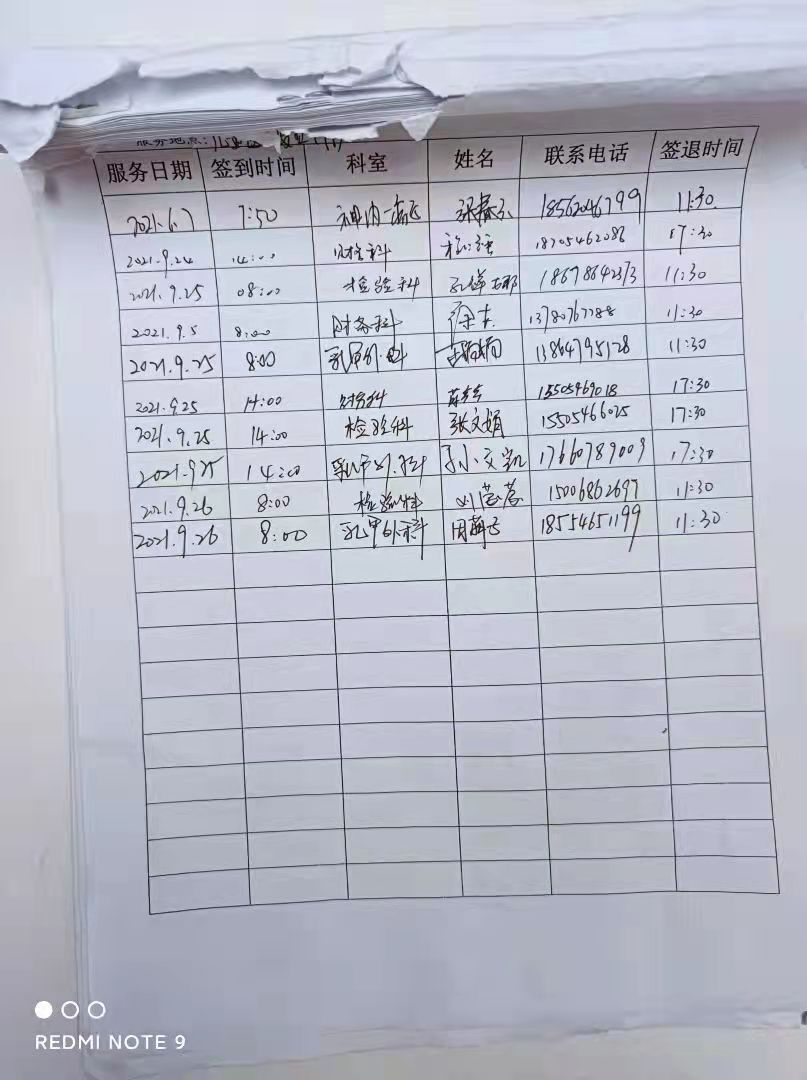 服务地点:
服务日期 签到时间 科室 姓名 联系电话 签退时间
2021.6.7 7:50 神内一 18562046799 11:30
2021.9.24 14:00 科 18705462086 17:30
2021.9.25 08:00 检验科 11:30
2021.9.5 8:00 财务科 13780767788 11:30
2021.9.25 8:00 乳甲外科 13864795128 11:30
2021.9.25 14:00 财务科 15505469018 17:30
2021.9.25 14:00 检验科 张文娟 15505466025 17:30
2021.9.25 14:00 乳甲外科 17660789009 17:30
2021.9.26 8:00 检验科 刘蕊蕊 15006862697 11:30
2021.9.26 8:00 乳甲外科 周萌 18554651199 11:30
REDMI NOTE 9